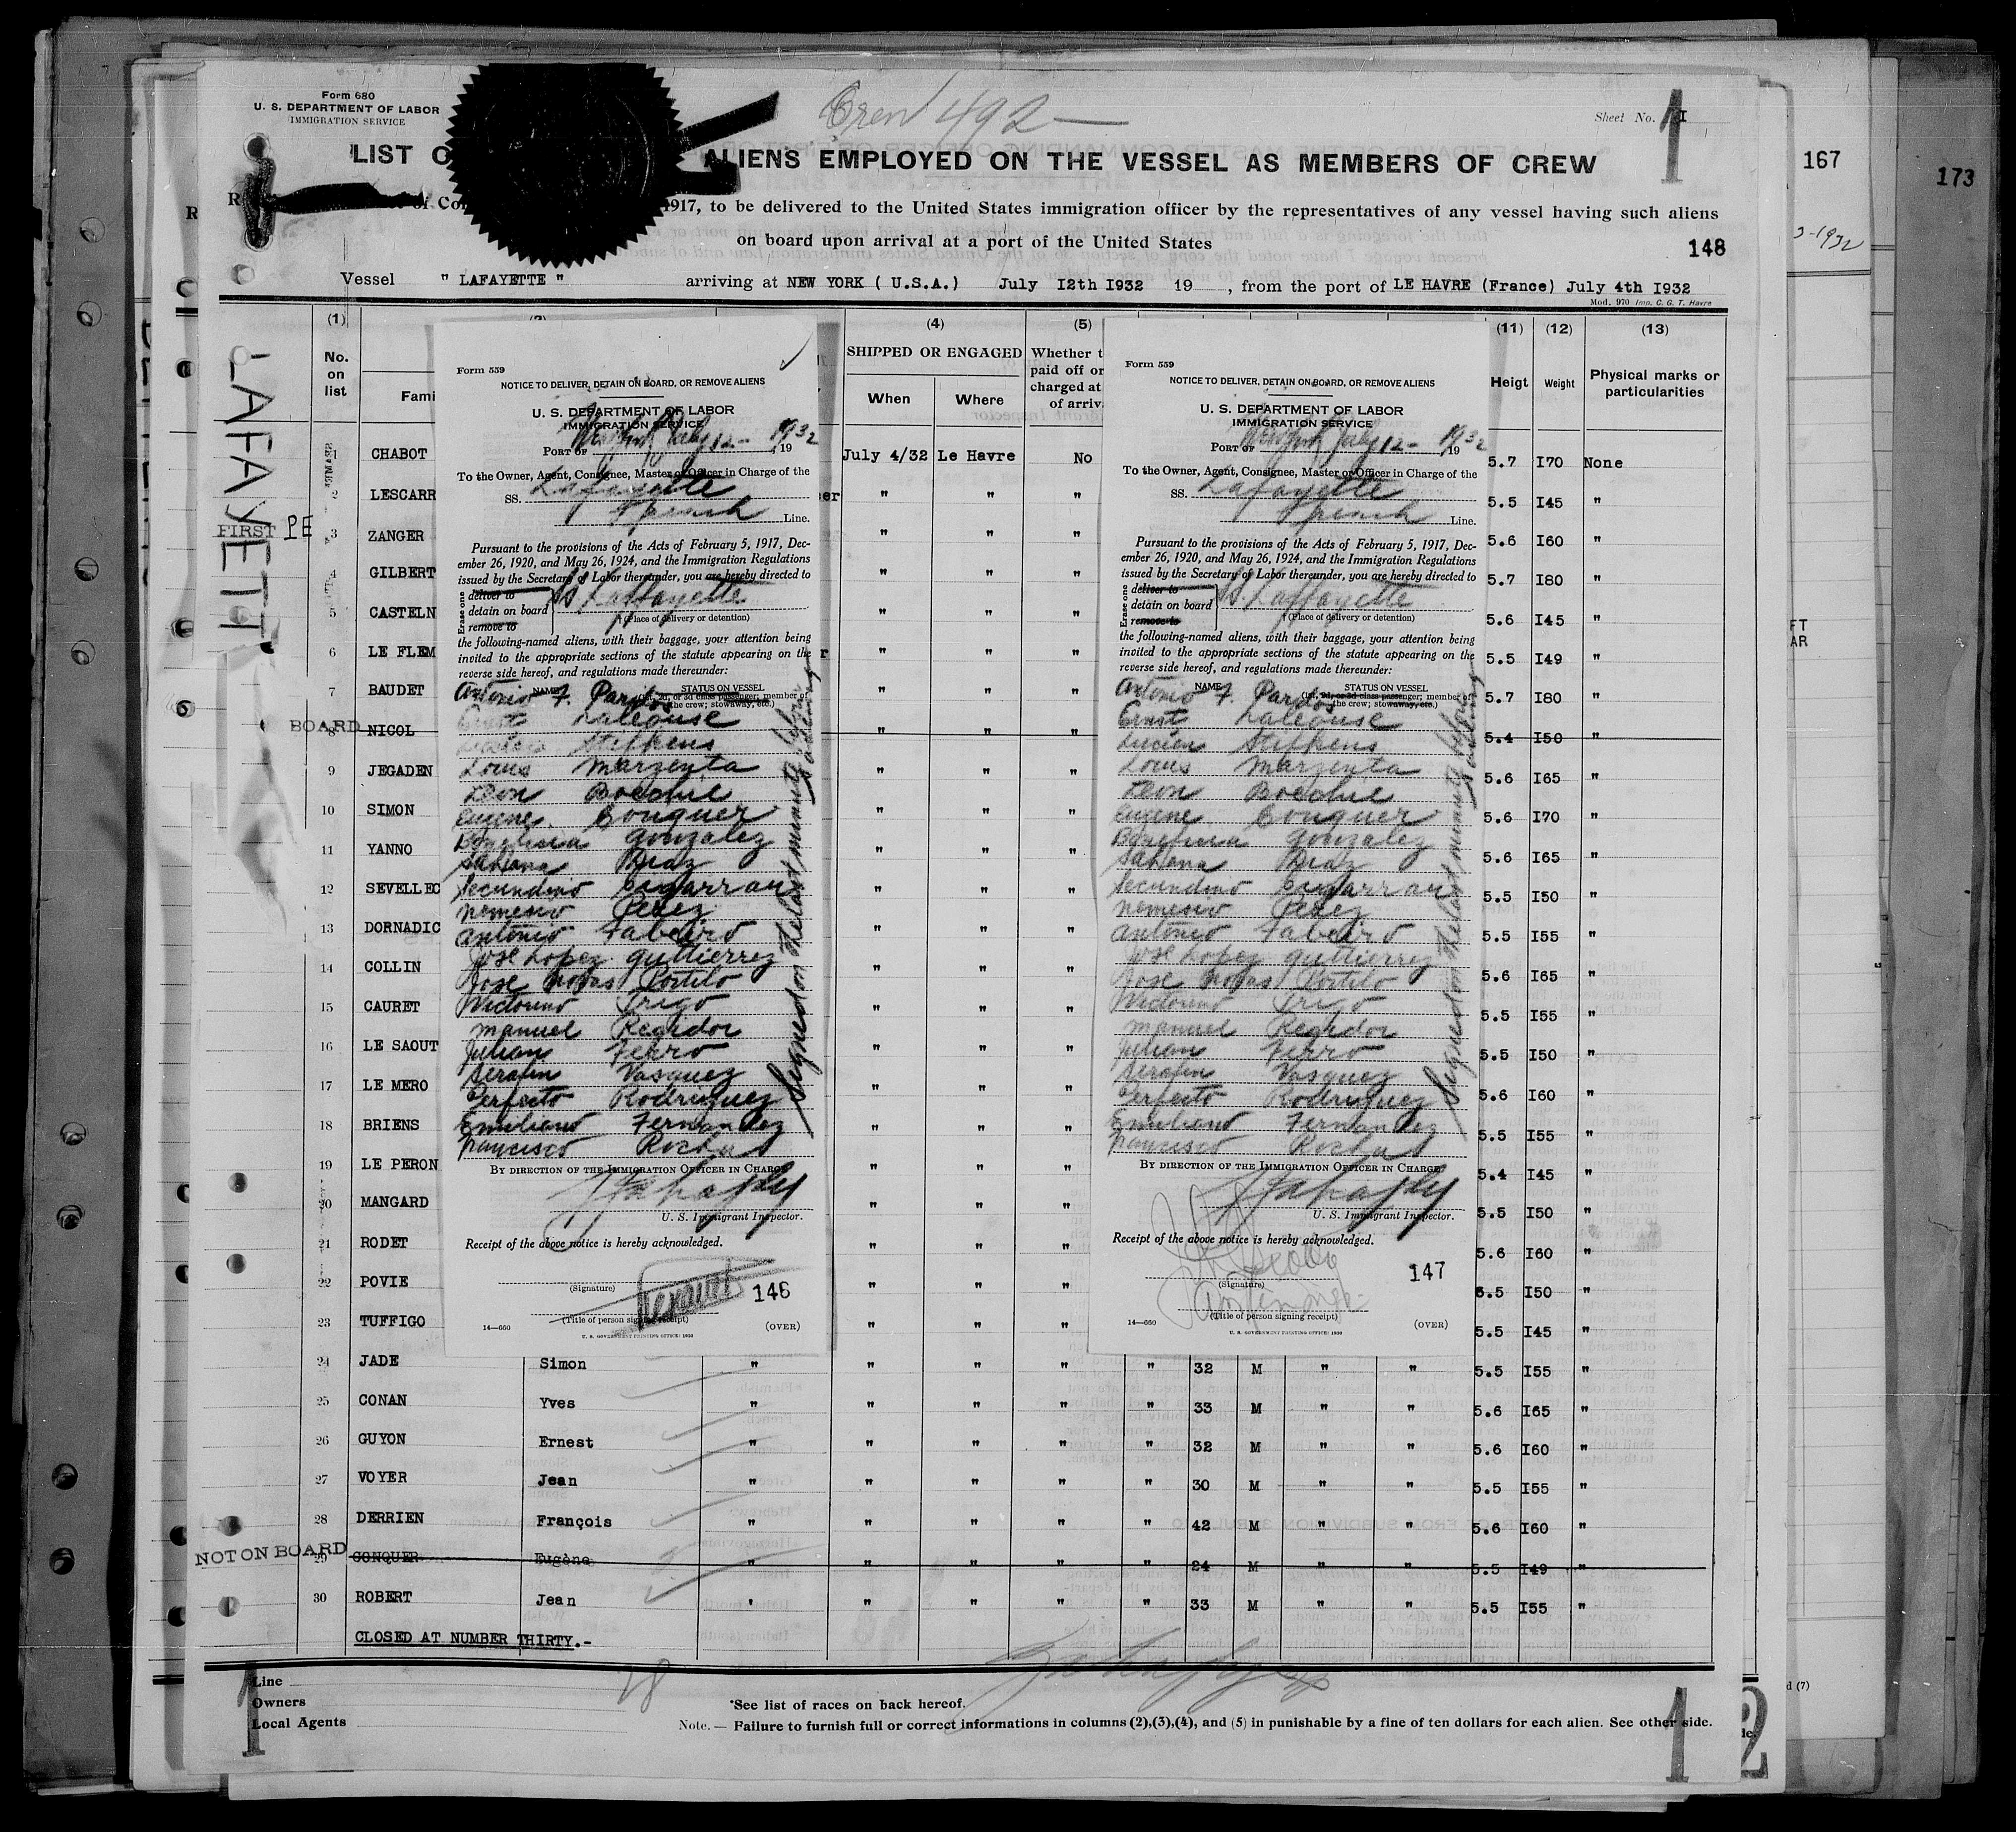 Form 680
U. S. DEPARTMENT OF LABOR
IMMIGRATION SERVICE
Crew 492 —
Sheet No. I
1
LIST O ALIENS EMPLOYED ON THE VESSEL AS MEMBERS OF CREW
167
173
1917, to be delivered to the United States immigration officer by the representatives of any vessel having such aliens
on board upon arrival at a port of the United States
148
3-1932
Vessel " LAFAYETTE " arriving at NEW YORK ( U.S.A.) July I2th I932 19 , from the port of LE HAVRE (France) July 4th I932
Mod. 970 Imp. C. G. T. Havre
(1) (4) (5) (11) (12) (13)
No. on list Fami SHIPPED OR ENGAGED When Where Heigt Weight Physical marks or particularities
Whether t
paid off or
charged at
of arriv
LAFAYETT
1 CHABOT July 4/32 Le Havre No 5.7 I70 None
2 LESCARR er " " " 5.5 I45 "
FIRST PE
3 ZANGER " " " 5.6 I60 "
4 GILBERT " " " 5.7 I80 "
5 CASTELN " " " 5.6 I45 "
6 LE FLEM r " " " 5.5 I49 "
7 BAUDET " " " 5.7 I80 "
BOARD
8 NICOL " " " 5.4 I50 "
9 JEGADEN " " " 5.6 I65 "
10 SIMON " " " 5.6 I70 "
11 YANNO " " " 5.6 I65 "
12 SEVELLEC " " " 5.5 I50 "
13 DORNADIC " " " 5.5 I55 "
14 COLLIN " " " 5.6 I65 "
15 CAURET " " " 5.5 I55 "
16 LE SAOUT " " " 5.5 I50 "
17 LE MERO " " " 5.6 I60 "
18 BRIENS " " " 5.5 I55 "
19 LE PERON " " " 5.4 I45 "
20 MANGARD " " " 5.5 I50 "
21 RODET " " " 5.6 I60 "
22 POVIE " " " 6.5 I50 "
23 TUFFIGO " " " 5.5 I45 "
24 JADE Simon " " " " " 32 M " " 5.5 I55 "
25 CONAN Yves " " " " " 33 M " " 5.6 I65 "
26 GUYON Ernest " " " " " 32 M " " 5.6 I60 "
27 VOYER Jean " " " " " 30 M " " 5.5 I55 "
28 DERRIEN François " " " " " 42 M " " 5.6 I60 "
NOT ON BOARD
29 CONQUER Eugène " " " " " 24 M " " 5.5 I49 "
30 ROBERT Jean ' " " " " 33 M " " 5.5 I55 "
CLOSED AT NUMBER THIRTY.-
28
Line
Owners
Local Agents
*See list of races on back hereof.
Note. — Failure to furnish full or correct informations in columns (2),(3),(4), and (5) in punishable by a fine of ten dollars for each alien. See other side.
1
1
2
FT
AR
d (7)
Form 559
NOTICE TO DELIVER, DETAIN ON BOARD, OR REMOVE ALIENS
U. S. DEPARTMENT OF LABOR
IMMIGRATION SERVICE
PORT OF New York July 12- , 1932
To the Owner, Agent, Consignee, Master or Officer in Charge of the
SS. Lafayette
French Line.
Pursuant to the provisions of the Acts of February 5, 1917, Dec-
ember 26, 1920, and May 26, 1924, and the Immigration Regulations
issued by the Secretary of Labor thereunder, you are hereby directed to
Erase one
deliver to
detain on board SS Laffayette
remove to (Place of delivery or detention)
the following-named aliens, with their baggage, your attention being
invited to the appropriate sections of the statute appearing on the
reverse side hereof, and regulations made thereunder:
NAME STATUS ON VESSEL
(1st, 2d, or 3d class passenger; member of
the crew; stowaway, etc.)
Antonio F. Pardos
Ernst Laleouse
Lucien Stephens
Louis Margenta
Leon Boedhie
Eugene Conquer
Gonzalez
Diaz
Secundino
Nemesio Perez
Antonio Tabeiro
Jose Lopez Guttierrez
Jose Novas Portilo
Victorino Trigo
Manuel Regidor
Julian Ferro
Serafin Vasquez
Perfecto Rodriguez
Emiliano Fernandez
Francisco Rocha
Signed on the last minute before sailing
BY DIRECTION OF THE IMMIGRATION OFFICER IN CHARGE
U. S. Immigrant Inspector.
Receipt of the above notice is hereby acknowledged.
(Signature)
146
(Title of person signing receipt)
14—660 U. S. GOVERNMENT PRINTING OFFICE: 1930 (OVER)
Form 559
NOTICE TO DELIVER, DETAIN ON BOARD, OR REMOVE ALIENS
U. S. DEPARTMENT OF LABOR
IMMIGRATION SERVICE
PORT OF New York July 12- 1932
To the Owner, Agent, Consignee, Master or Officer in Charge of the
SS. Lafayette
French Line.
Pursuant to the provisions of the Acts of February 5, 1917, Dec-
ember 26, 1920, and May 26, 1924, and the Immigration Regulations
issued by the Secretary of Labor thereunder, you are hereby directed to
Erase one
deliver to
detain on board SS. Laffayette
remove to (Place of delivery or detention)
the following-named aliens, with their baggage, your attention being
invited to the appropriate sections of the statute appearing on the
reverse side hereof, and regulations made thereunder:
NAME STATUS ON VESSEL
(1st, 2d, or 3d class passenger; member of
the crew; stowaway, etc.)
Antonio F. Pardos
Ernst Laleouse
Lucien Stephens
Louis Margenta
Leon Boedhie
Eugene Conquer
Gonzalez
Diaz
Secundino
Nemesio Perez
Antonio Tabeiro
Jose Lopez Guttierrez
Jose Novas Portilo
Victorino Trigo
Manuel Regidor
Julian Ferro
Serafin Vasquez
Perfecto Rodriguez
Emiliano Fernandez
Francisco Rocha
Signed on the last minute before sailing
BY DIRECTION OF THE IMMIGRATION OFFICER IN CHARGE
U. S. Immigrant Inspector.
Receipt of the above notice is hereby acknowledged.
(Signature)
147
(Title of person signing receipt)
14—660 U. S. GOVERNMENT PRINTING OFFICE: 1930 (OVER)